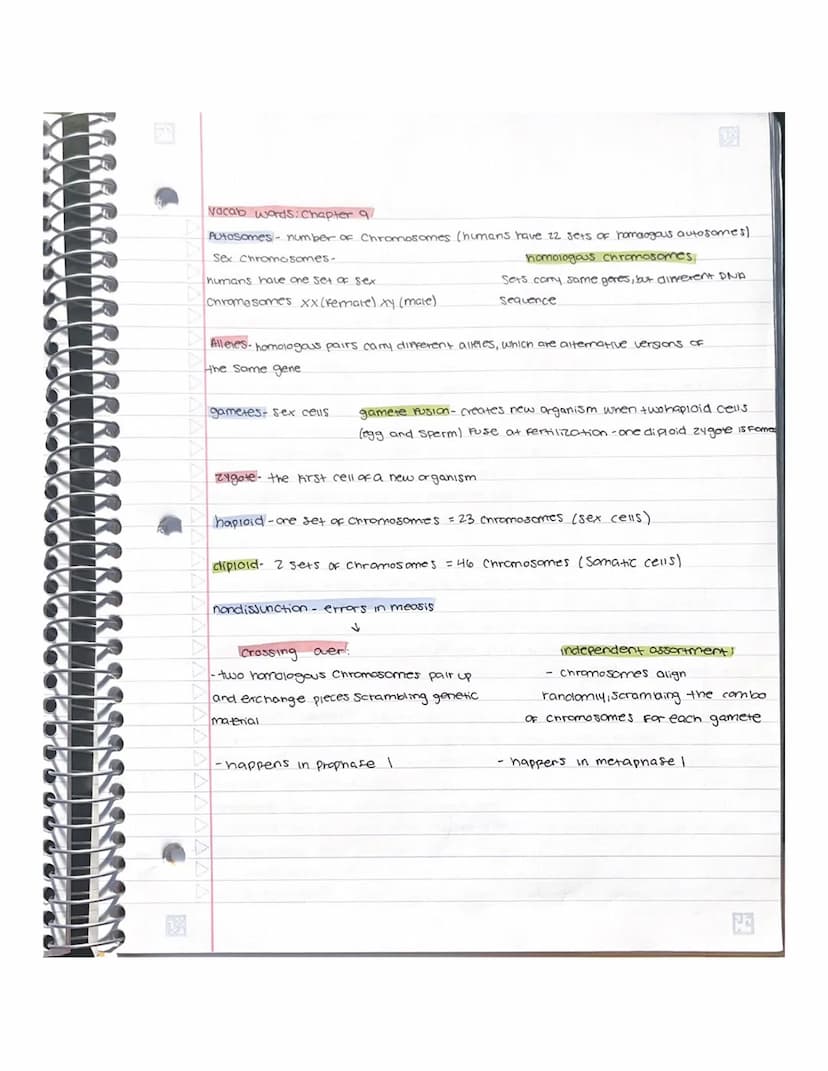 Vocab words: Chapter 9
Autosomes - number of chromosomes (humans have 22 sets of homologous autosomes)
Sex chromosomes -
homologous chromosomes
humans have one set of sex
sets carry same genes, but different DNA
chromosomes XX (female) XY (male)
sequence
Alleles - homologous pairs carry different alleles, which are alternative versions of
the same gene
gametes - sex cells
gamete fusion - creates new organism when two haploid cells
(egg and sperm) fuse at fertilization - one diploid zygote is
zygote - the first cell of a new organism
haploid - one set of chromosomes = 23 chromosomes (sex cells)
diploid - 2 sets of chromosomes = 46 chromosomes (somatic cells)
nondisjunction - errors in meosis
↓
crossing over:
independent assortment:
- two homologous chromosomes pair up
- chromosomes align
and exchange pieces scrambling genetic
randomly, scrambling the combo
material
of chromosomes for each gamete
- happens in prophase 1
- happens in metaphase 1